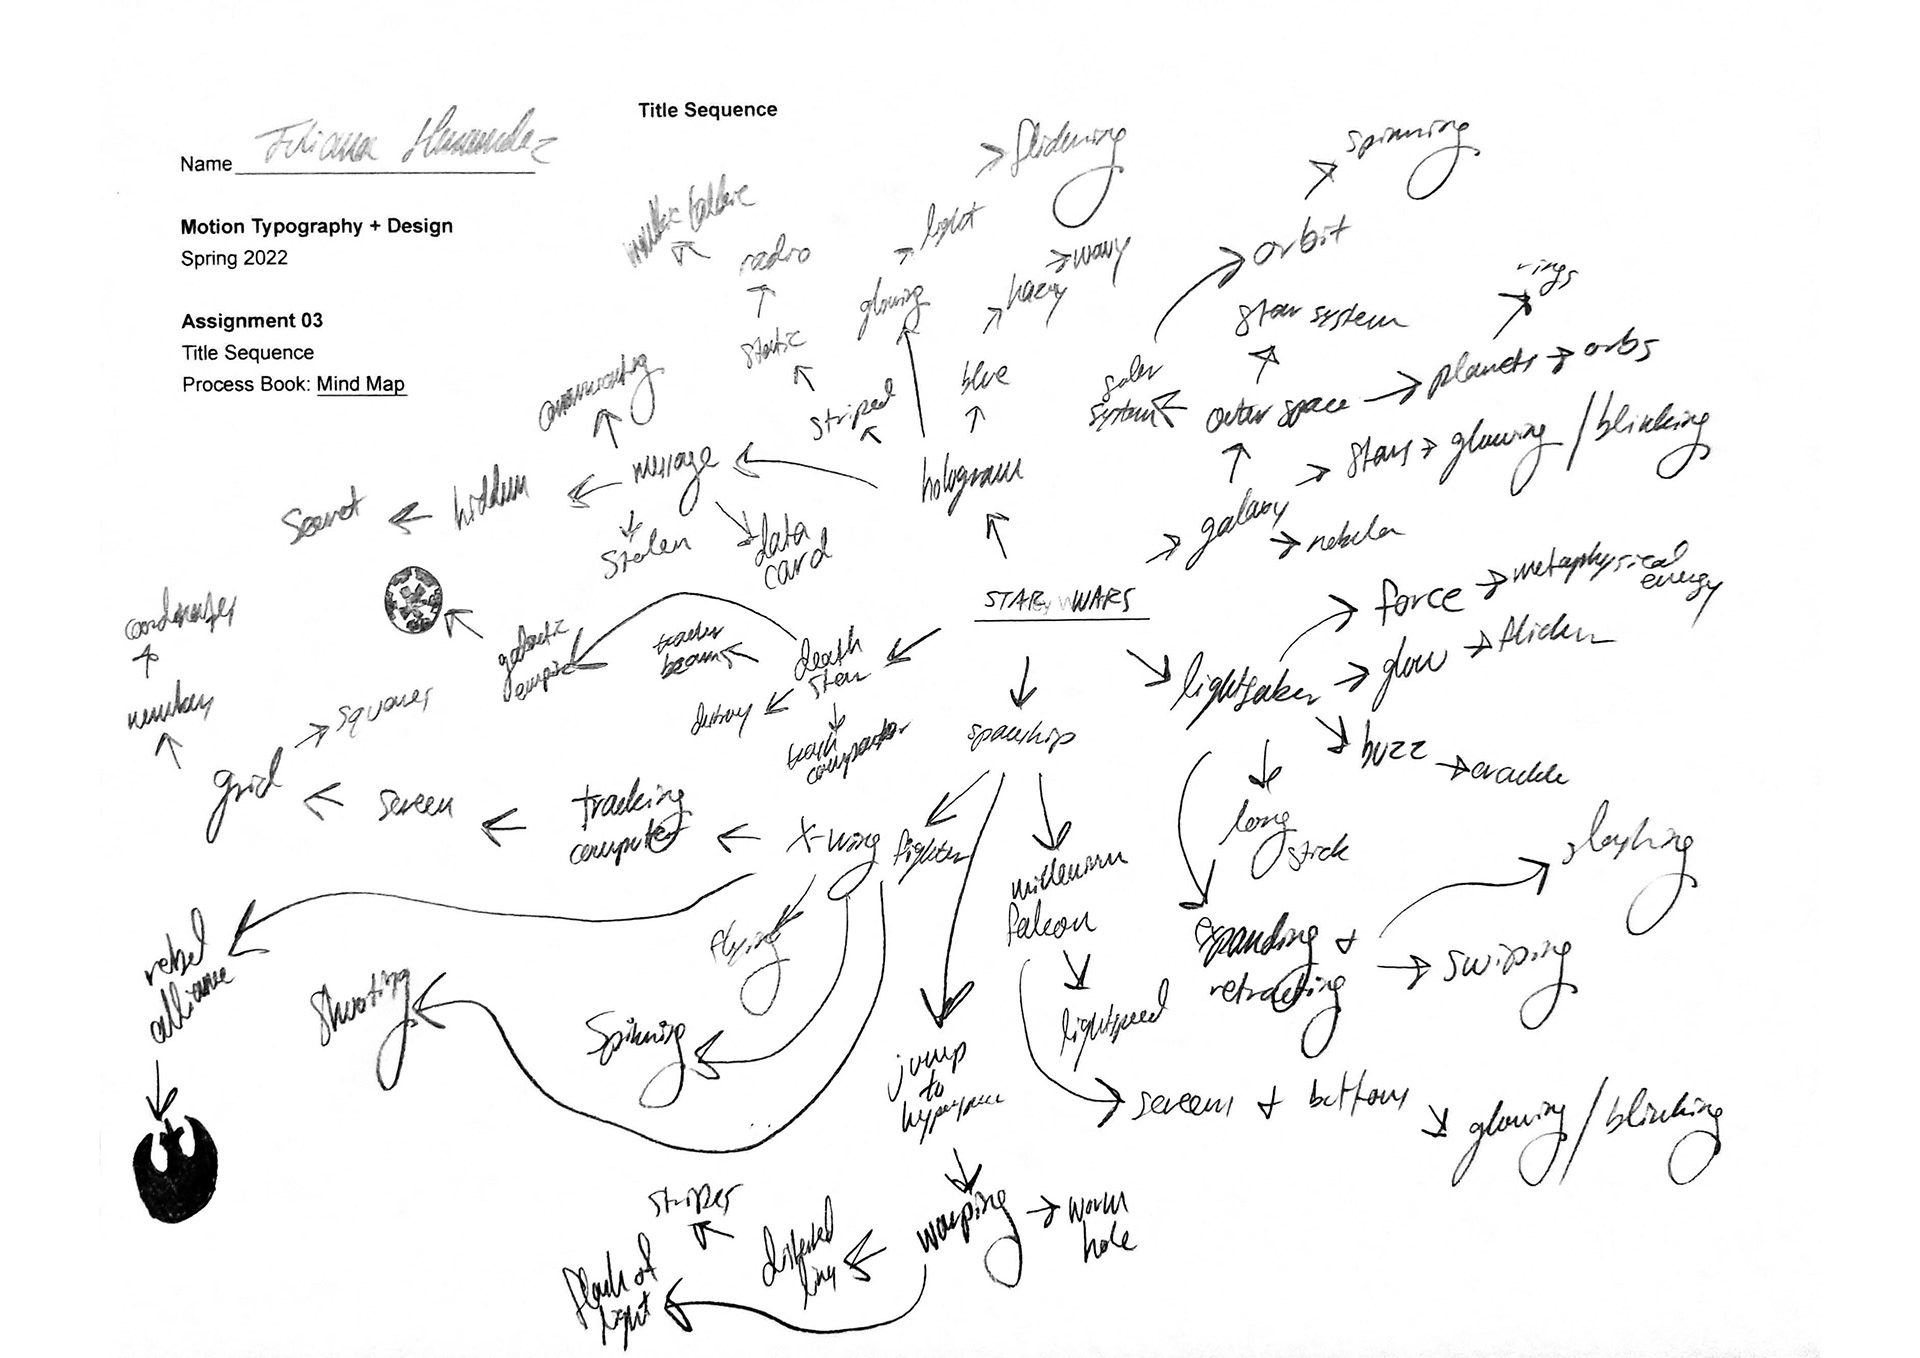 Title Sequence
Name
Motion Typography + Design
Spring 2022
Assignment 03
Title Sequence
Process Book: Mind Map
STAR WARS
hologram
glowing
light
blue
hazy
wavy
striped
static
radio
message
hidden
secret
stolen
data
card
galaxy
nebula
stars
glowing / blinking
outer space
star system
solar
system
orbit
spinning
planets
orbs
rings
lightsaber
force
metaphysical
energy
glow
flicker
buzz
crackle
long
stick
expanding +
retracting
slashing
swiping
spaceship
millenium
falcon
lightspeed
screens + buttons
glowing / blinking
jump
to
hyperspace
warping
worm
hole
distorted
lines
stripes
flash of
light
X-wing fighter
flying
spinning
shooting
rebel
alliance
tracking
computer
screen
grid
squares
numbers
coordinates
death
star
tractor
beam
destroy
trash
compactor
galactic
empire